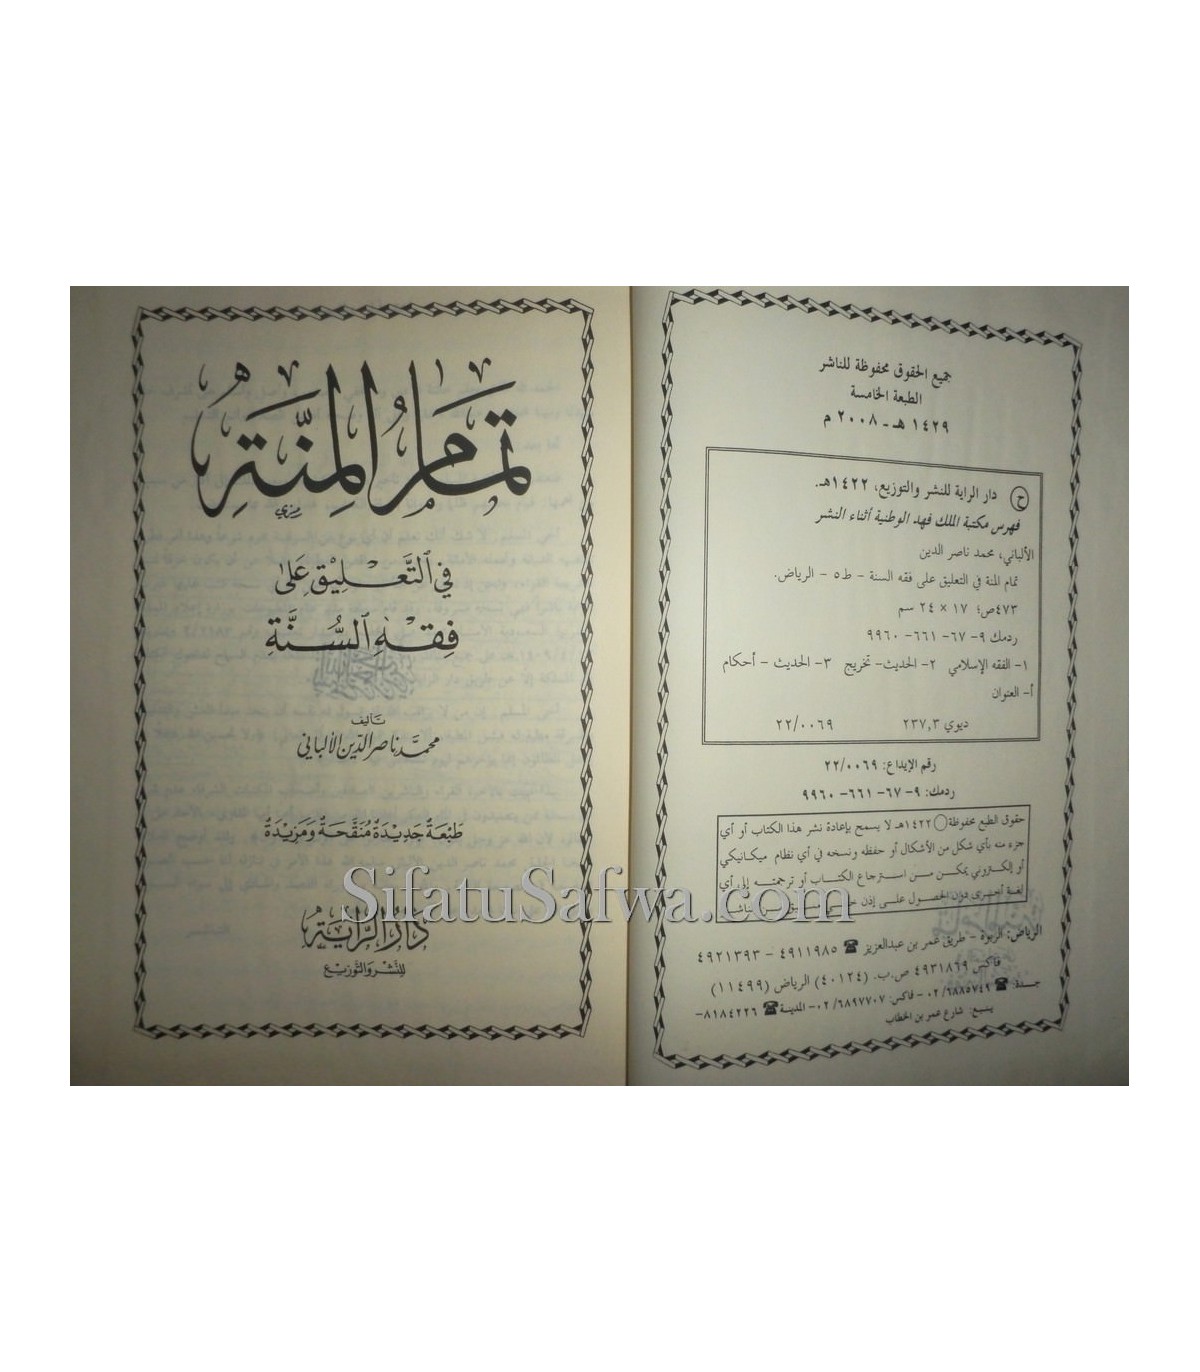 جميع الحقوق محفوظة للناشر
الطبعة الخامسة
١٤٢٩ هـ ـ ٢٠٠٨ م
ح دار الراية للنشر والتوزيع، ١٤٢٢هـ.
فهرس مكتبة الملك فهد الوطنية أثناء النشر
الألباني، محمد ناصر الدين
تمام المنة في التعليق على فقه السنة - ط٥ - الرياض.
٤٧٣ص؛ ١٧ × ٢٤ سم
ردمك ٩- ٦٧- ٦٦١- ٩٩٦٠
١- الفقه الإسلامي ٢- الحديث- تخريج ٣- الحديث - أحكام
أ- العنوان
ديوي ٢٣٧,٣ ٢٢/٠٠٦٩
رقم الإيداع: ٢٢/٠٠٦٩
ردمك: ٩- ٦٧- ٦٦١- ٩٩٦٠
حقوق الطبع محفوظة ١٤٢٢هـ لا يسمح بإعادة نشر هذا الكتاب أو أي
جزء منه بأي شكل من الأشكال أو حفظه ونسخه في أي نظام ميكانيكي
أو إلكتروني يمكن من استرجاع الكتاب أو ترجمته إلى أي
لغة أخرى دون الحصول على إذن
الرياض: الربوة - طريق عمر بن عبدالعزيز ☎ ٤٩١١٩٨٥ - ٤٩٢١٣٩٣
فاكس ٤٩٣١٨٦٩ ص.ب. (٤٠١٢٤) الرياض (١١٤٩٩)
جدة: ☎ ٠٢/٦٨٨٥٧٤٩ - فاكس: ٠٢/٦٨٩٧٧٠٧- المدينة☎ ٨١٨٤٢٢٦-
ينبع: شارع عمر بن الخطاب
تمام المنة
في التعليق على
فقه السنة
تأليف
محمد ناصر الدين الألباني
طبعة جديدة منقحة ومزيدة
دار الراية
للنشر والتوزيع
SifatuSafwa.com